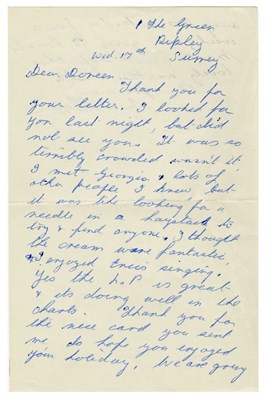 1 The Green
Ripley
Wed. 17th Surrey
Dear Doreen
Thank you for
your letter. I looked for
you last night, but did
not see you. It was so
terribly crowded wasn't it
I met Georgia & lots of
other people I knew, but
it was like looking for a
needle in a haystack to
try & find anyone. I thought
the cream were fantastic,
& I enjoyed Eric's singing.
Yes the L.P is great
& its doing well in the
charts. Thank you for
the nice card you sent
me, So hope you enjoyed
your holiday. We are going